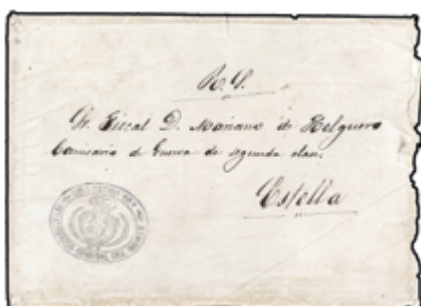 R. S.
Sr. Fiscal D. Mariano de Helguero
Comisario de Guerra de segunda clase.
Estella